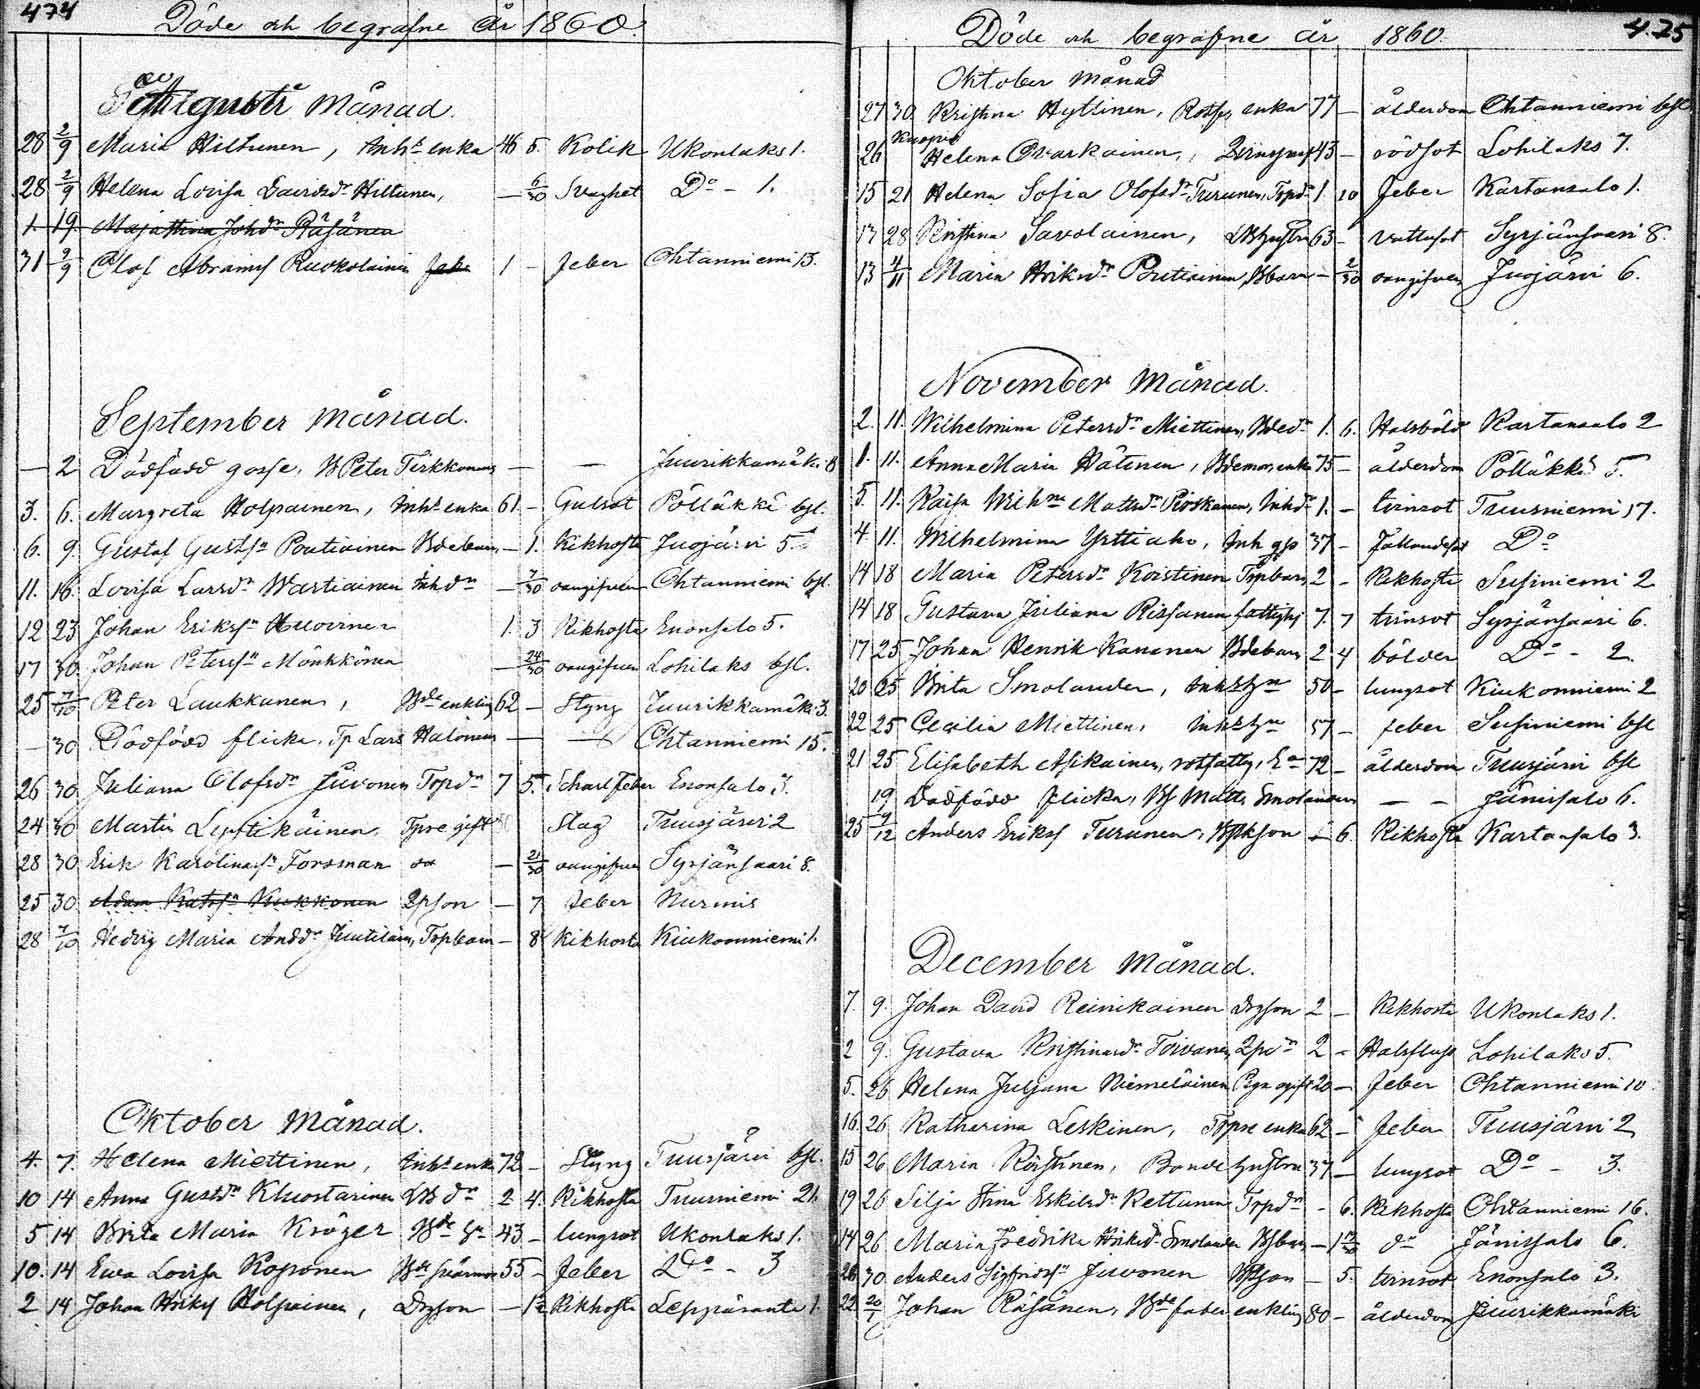 474
Döde och begrafne år 1860.
Augusti Månad.
28 2/9 Maria Hiltunen, Inhs enka 46 5. Kolik Ukonlaks 1.
28 2/9 Helena Lovisa Davidsdr Hiltunen, — 6/30 Svaghet Do - 1.
1. 19. Maja Stina Johdr Räsänen
31 2/9 Olof Abramss Ruokolainen 1 - feber Ohtanniemi 13.
September Månad.
— 2 Dödfödd gosse, B Peter Tirkkonens — — Juurikkamäki 8
3. 6. Margreta Holpainen, Inhs enka 61 - Gulsot Pölläkkä bsl.
6. 9. Gustaf Gustfsn Poutiainen Bdebarn — 1. Kikhosta Juojärvi 5.
11. 16. Lovisa Larsdr Wartiainen Inhdr — 7/30 oangifven Ohtanniemi bsl.
12 23 Johan Erikssn Huovinen 1. 3 Kikhosta Enonsalo 5.
17 30. Johan Peterssn Mönkkönen — 24/30 oangifven Lohilaks bsl.
25 7/10 Peter Laukkanen, Bde enkling 62 - Styng Juurikkamäki 3.
— 30 Dödfödd flicka, Tp Lars Halonens — — Ohtanniemi 15.
26 30 Juliana Olofsdr Juvonen Torpdr 7 5. Scharl.feber Enonsalo 3.
24 30 Martin Lyytikäinen, Tpre gift Slag Tuusjärvi 2
28 30 Erik Karolinassn Forsman oä — 21/30 oangifven Syrjänsaari 8.
25 30 Adam Kukkonen Inhson — 7 feber Nurmis
28 7/10 Hedvig Maria Andsdr Juutilain, Torpbarn — 8 Kikhosta Kiukoonniemi 1.
Oktober Månad.
4. 7. Helena Miettinen, Inhs enka 72 - Styng Tuusjärvi bsl.
10 14 Anna Gustdr Kluostarinen LBdr 2 4. Kikhosta Tuusniemi 21.
5 14 Brita Maria Kröger Bde hu 43 - lungsot Ukonlaks 1.
10. 14 Ewa Lovisa Koponen 55 - feber Do - 3
2 14 Johan Henrikss Holpainen, Drgson — 1/2 Kikhosta Leppäranta 1.
4.25
Döde och begrafne år 1860.
Oktober Månad
27 30 Kristina Hyttinen, enka 77 — ålderdom Ohtanniemi bsl
Kuopio
26 Helena Ovaskainen, 43 — rödsot Lohilaks 7.
15 21 Helena Sofia Olofsdr Turunen, Torpdr 1. 10 feber Kartansalo 1.
13 28 Kristina Savolainen, LBhustru 63 - vattusot Syrjänsaari 8.
13 4/11 Maria Henriksdr Poutiainen, Bbarn - 2/30 oangifven Juojärvi 6.
November Månad.
2. 11. Wilhelmina Petersdr Miettinen, Bdedr 1. 6. Halsböld Kartansalo 2
1. 11. Anna Maria Hätinen, enka 75 - ålderdom Pölläkkä 5.
5. 11. Kaisa Wilhna Mattsdr Roskanen, Inhdr 1. - tvinsot Tuusniemi 17.
4 11. Wilhelmina Yrttiaho, Inh 37 - fallandesot Do
14 18 Maria Petersdr Koistinen Torpbarn 2 - Kikhosta Susiniemi 2
14 18 Gustava Juliana Rissanen fattighj 7. 7 tvinsot Syrjänsaari 6.
17 25 Johan Henrik Kananen Bdebarn 2 4 bölder Do - 2.
20 25 Brita Smolander, Inhs hu 50 - lungsot Kiukonniemi 2
22 25 Cecilia Miettinen, Inhs hu 57 - feber Susiniemi bsl
21 25 Elisabeth Asikainen, rotfattig, Ea 72 - ålderdom Tuusjärvi bsl
19 Dödfödd flicka, B Matts Smolanders — — Jänissalo 6.
25 9/12 Anders Erikss Turunen, - 6. Kikhosta Kartansalo 3.
December Månad.
7. 9. Johan David Reinikainen Drgson 2 - Kikhosta Ukonlaks 1.
2 9. Gustava Kristinasdr Toivanen, 2 - Halsfluss Lohilaks 5.
5. 26 Helena Juljana Niemeläinen Pign ogift 20 - feber Ohtanniemi 10.
16 26 Katharina Leskinen, Tpre enka 62 - feber Tuusjärvi 2
15 26 Maria Räsänen, Bonde hustru 37 - lungsot Do - 3.
19 26 Silja Stina Eskilsdr Kettunen Torpdr - 6. Kikhosta Ohtanniemi 16.
14 26 Maria Fredrika Henriksdr Smolander Bbarn do Jänissalo 6.
26 30. Anders Sigfridssn Juvonen - 5. tvinsot Enonsalo 3.
22 20/1 Johan Räsänen, Bde fader enkling 80 - ålderdom Juurikkamäki